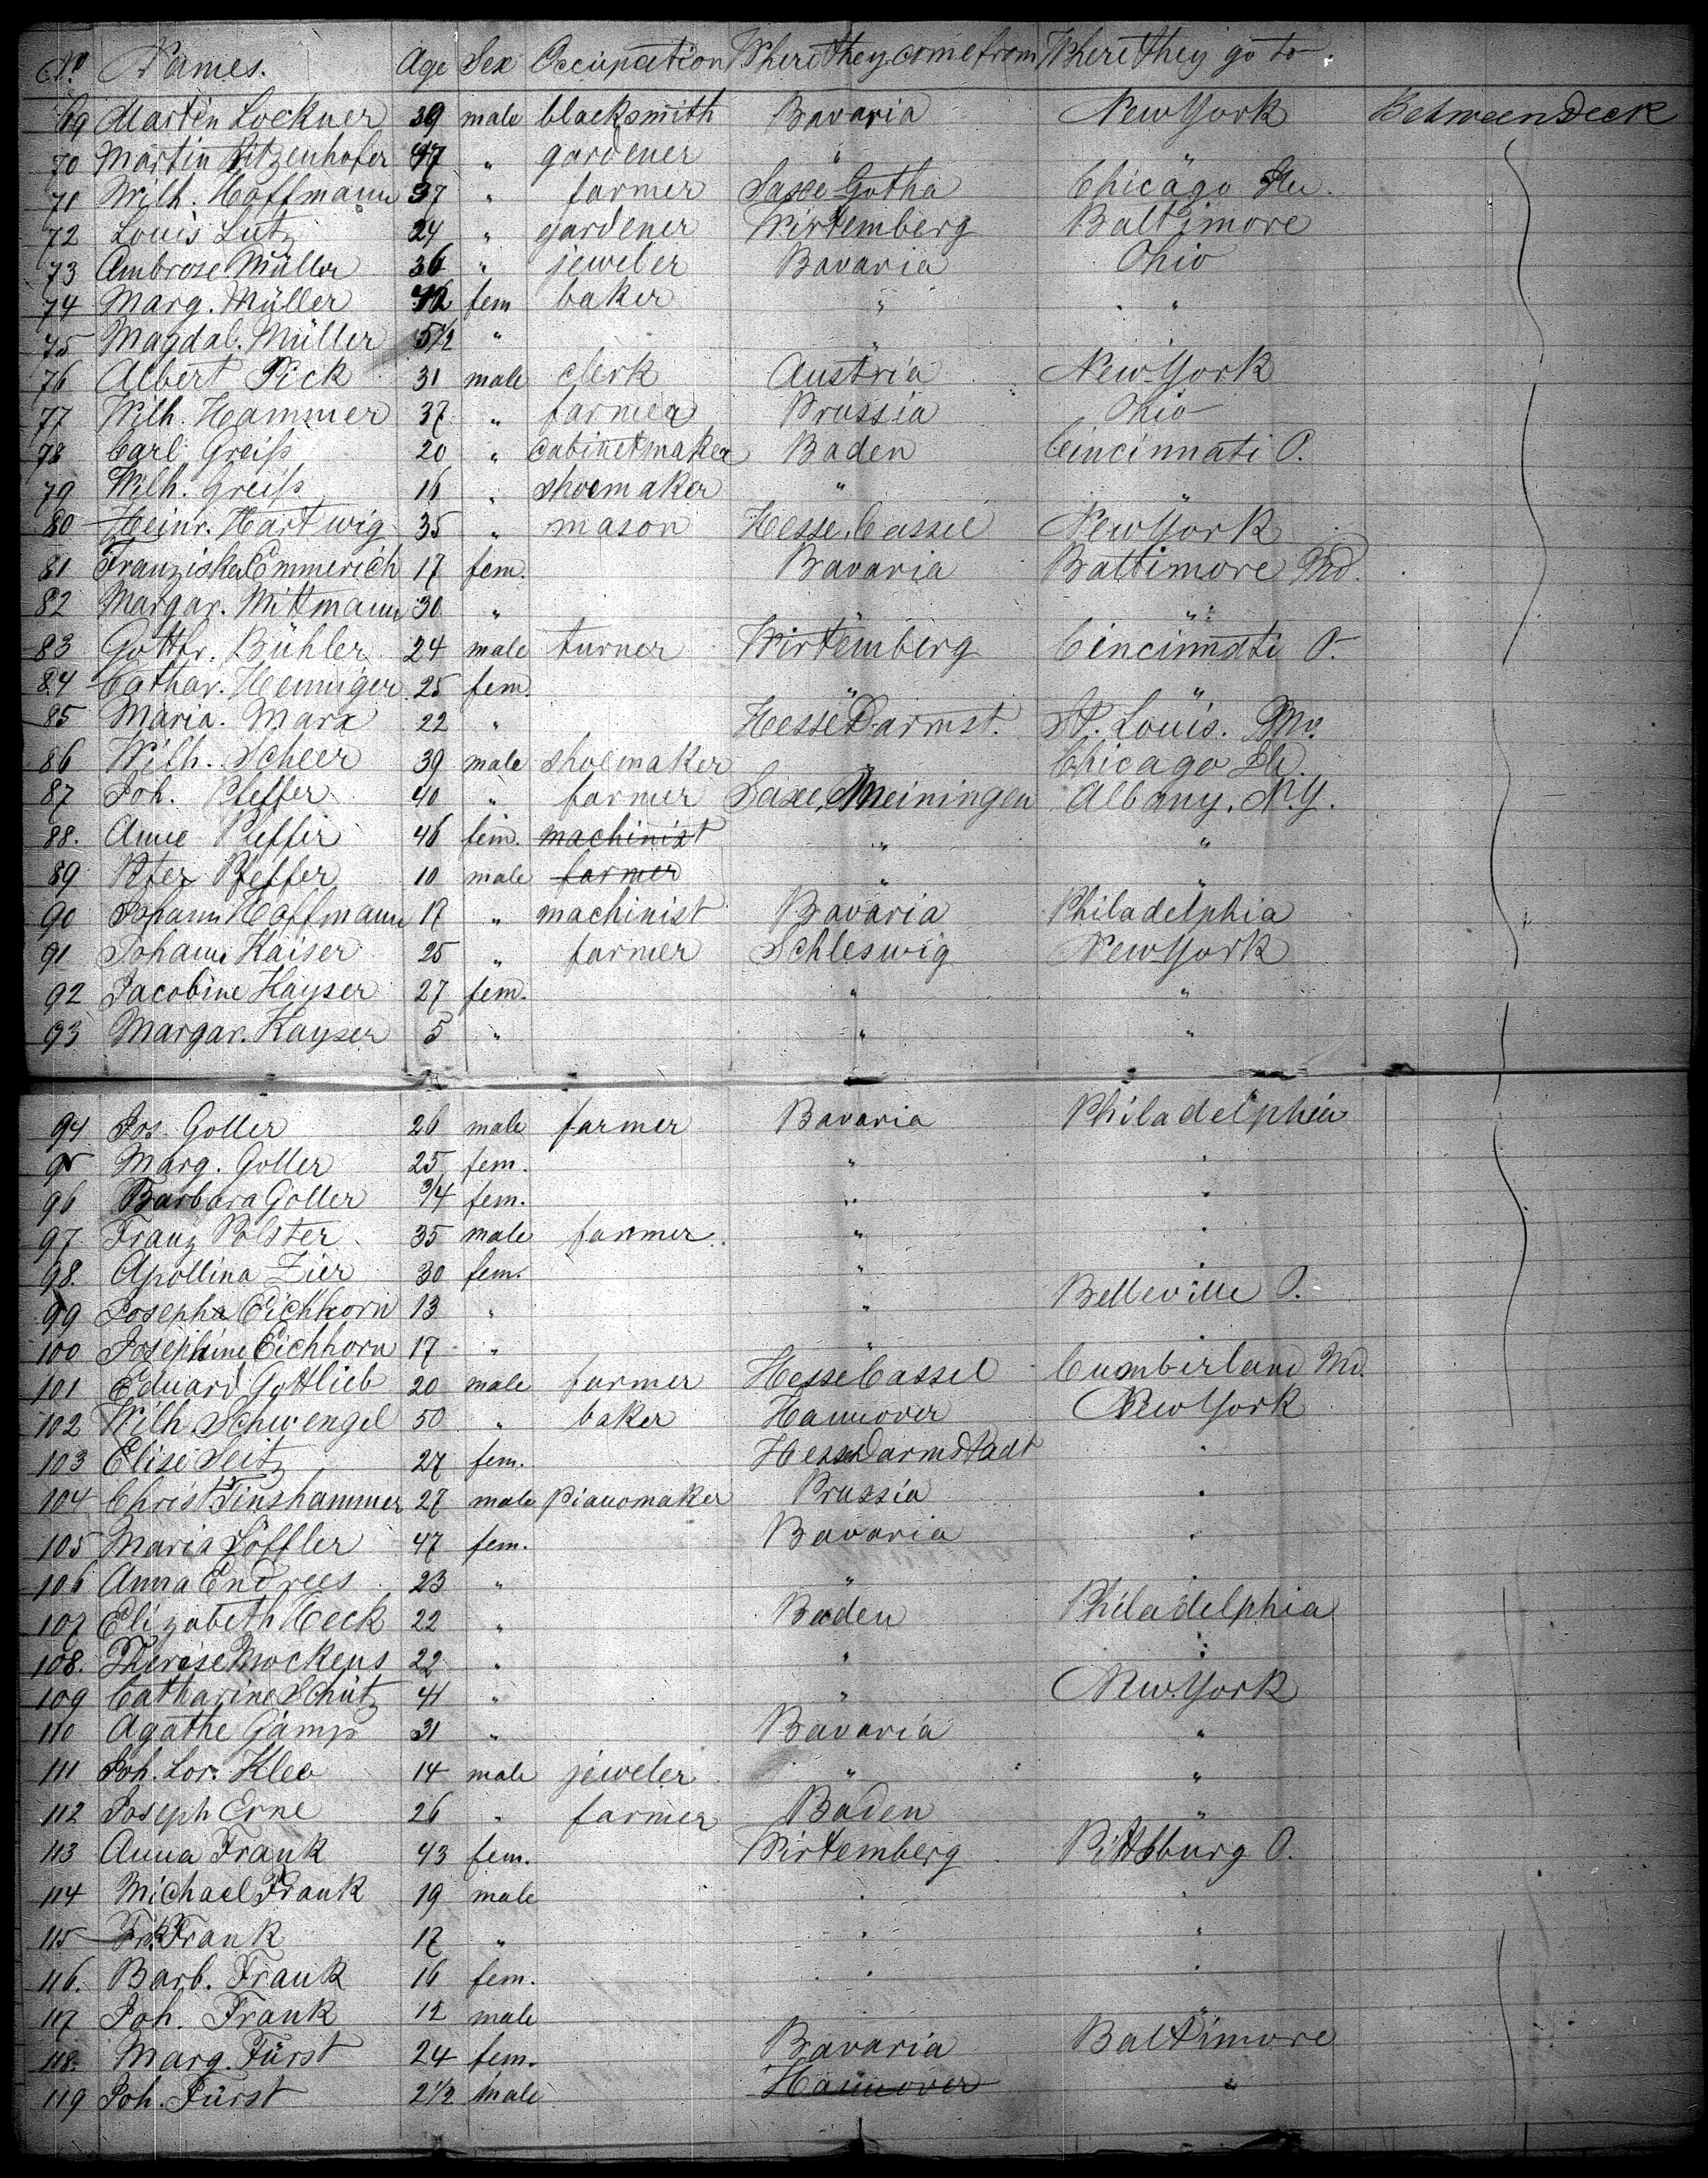 No. Names. Age Sex Occupation Where they come from Where they go to
69 Martin Lockner 39 male blacksmith Bavaria New York Between Deck
70 Martin Litzenhofer 47 " gardener " "
71 Wilh. Hoffmann 37 " farmer Saxe-Gotha Chicago
72 Louis Lutz 24 " gardener Wirtemberg Baltimore
73 Ambrose Müller 36 " jeweler Bavaria Ohio
74 Marg. Müller fem baker " "
75 Magdal. Müller 5½ " " "
76 Albert Pick 31 male clerk Austria New-York
77 Wilh. Hammer 37 " farmer Prussia Ohio
78 Carl Greiß 20 " cabinetmaker Baden Cincinnati O.
79 Wilh. Greiß 16 " shoemaker " "
80 Heinr. Hartwig 35 " mason Hesse, Cassel New York
81 Franziska Emmerich 17 fem. Bavaria Baltimore Md.
82 Margar. Wittmann 30 " " "
83 Gottfr. Bühler 24 male turner Wirtemberg Cincinnati O.
84 Cathar. Henniger 25 fem. " "
85 Maria. Marx 22 " Hesse Darmst. St. Louis. Mo.
86 Wilh. Scheer 39 male shoemaker " Chicago Ill.
87 Joh. Pfeffer 40 " farmer Saxe, Meiningen Albany, N.Y.
88. Anne Pfeffer 46 fem. machinist " "
89 Peter Pfeffer 10 male farmer " "
90 Johann Hoffmann 17 " machinist Bavaria Philadelphia
91 Johann Kaiser 25 " farmer Schleswig New York
92 Jacobine Kayser 27 fem. " "
93 Margar. Kayser 5 " " "
94 Jos. Goller 26 male farmer Bavaria Philadelphia
95 Marg. Goller 25 fem. " "
96 Barbara Goller 3/4 fem. " "
97 Franz Polster 35 male farmer " "
98. Apollina Zier 30 fem. " "
99 Josepha Eichhorn 13 " " Belleville O.
100 Josephine Eichhorn 17 " " "
101 Eduard Gottlieb 20 male farmer Hesse Cassel Cumberland Md.
102 Wilh. Schwengel 50 " baker Hannover New York
103 Elise Seitz 27 fem. Hesse Darmstadt "
104 Christ. Tinshammer 27 male pianomaker Prussia "
105 Maria Löffler 47 fem. Bavaria "
106 Anna Endrees 23 " " "
107 Elizabeth Heck 22 " Baden Philadelphia
108. Therese Mockens 22 " " "
109 Catharine Schütz 41 " " New-York
110 Agathe Gämp 31 " Bavaria "
111 Joh. Lor. Klee 14 male jeweler " "
112 Joseph Erne 26 " farmer Baden "
113 Anna Frank 43 fem. Wirtemberg Pittsburg O.
114 Michael Frank 19 male " "
115 Frank 17 " " "
116. Barb. Frank 16 fem. " "
117 Joh. Frank 12 male " "
118. Marg. Fürst 24 fem. Bavaria Baltimore
119 Joh. Fürst 2½ male Hannover "